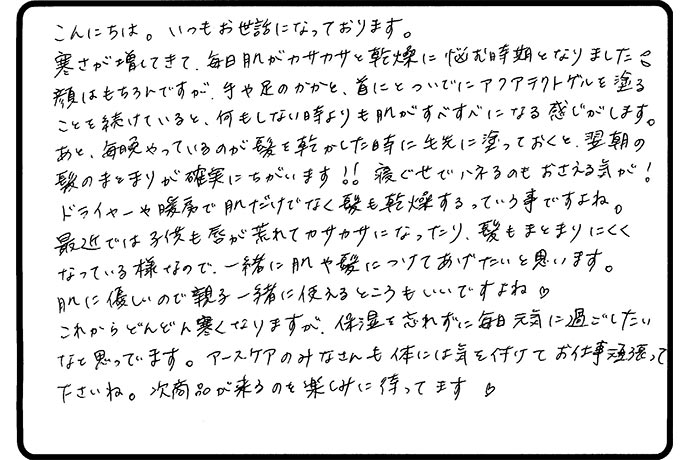 こんにちは。いつもお世話になっております。
寒さが増してきて、毎日肌がカサカサと乾燥に悩む時期となりました
顔はもちろんですが、手や足のかかと、首にとついでにアクアテクトゲルを塗る
ことを続けていると、何もしない時よりも肌がすべすべになる感じがします。
あと、毎晩やっているのが髪を乾かした時に毛先に塗っておくと、翌朝の
髪のまとまりが確実にちがいます!! 寝ぐせでハネるのもおさえる気が!
ドライヤーや暖房で肌だけでなく髪も乾燥するっていう事ですよね。
最近では子供も唇が荒れてカサカサになったり、髪もまとまりにくく
なっている様なので、一緒に肌や髪につけてあげたいと思います。
肌に優しいので親子一緒に使えるところもいいですよね♡
これからどんどん寒くなりますが、保湿を忘れずに毎日元気に過ごしたい
なと思ってます。アースケアのみなさんも体には気を付けてお仕事頑張って
ださいね。次商品が来るのを楽しみに待ってます♡